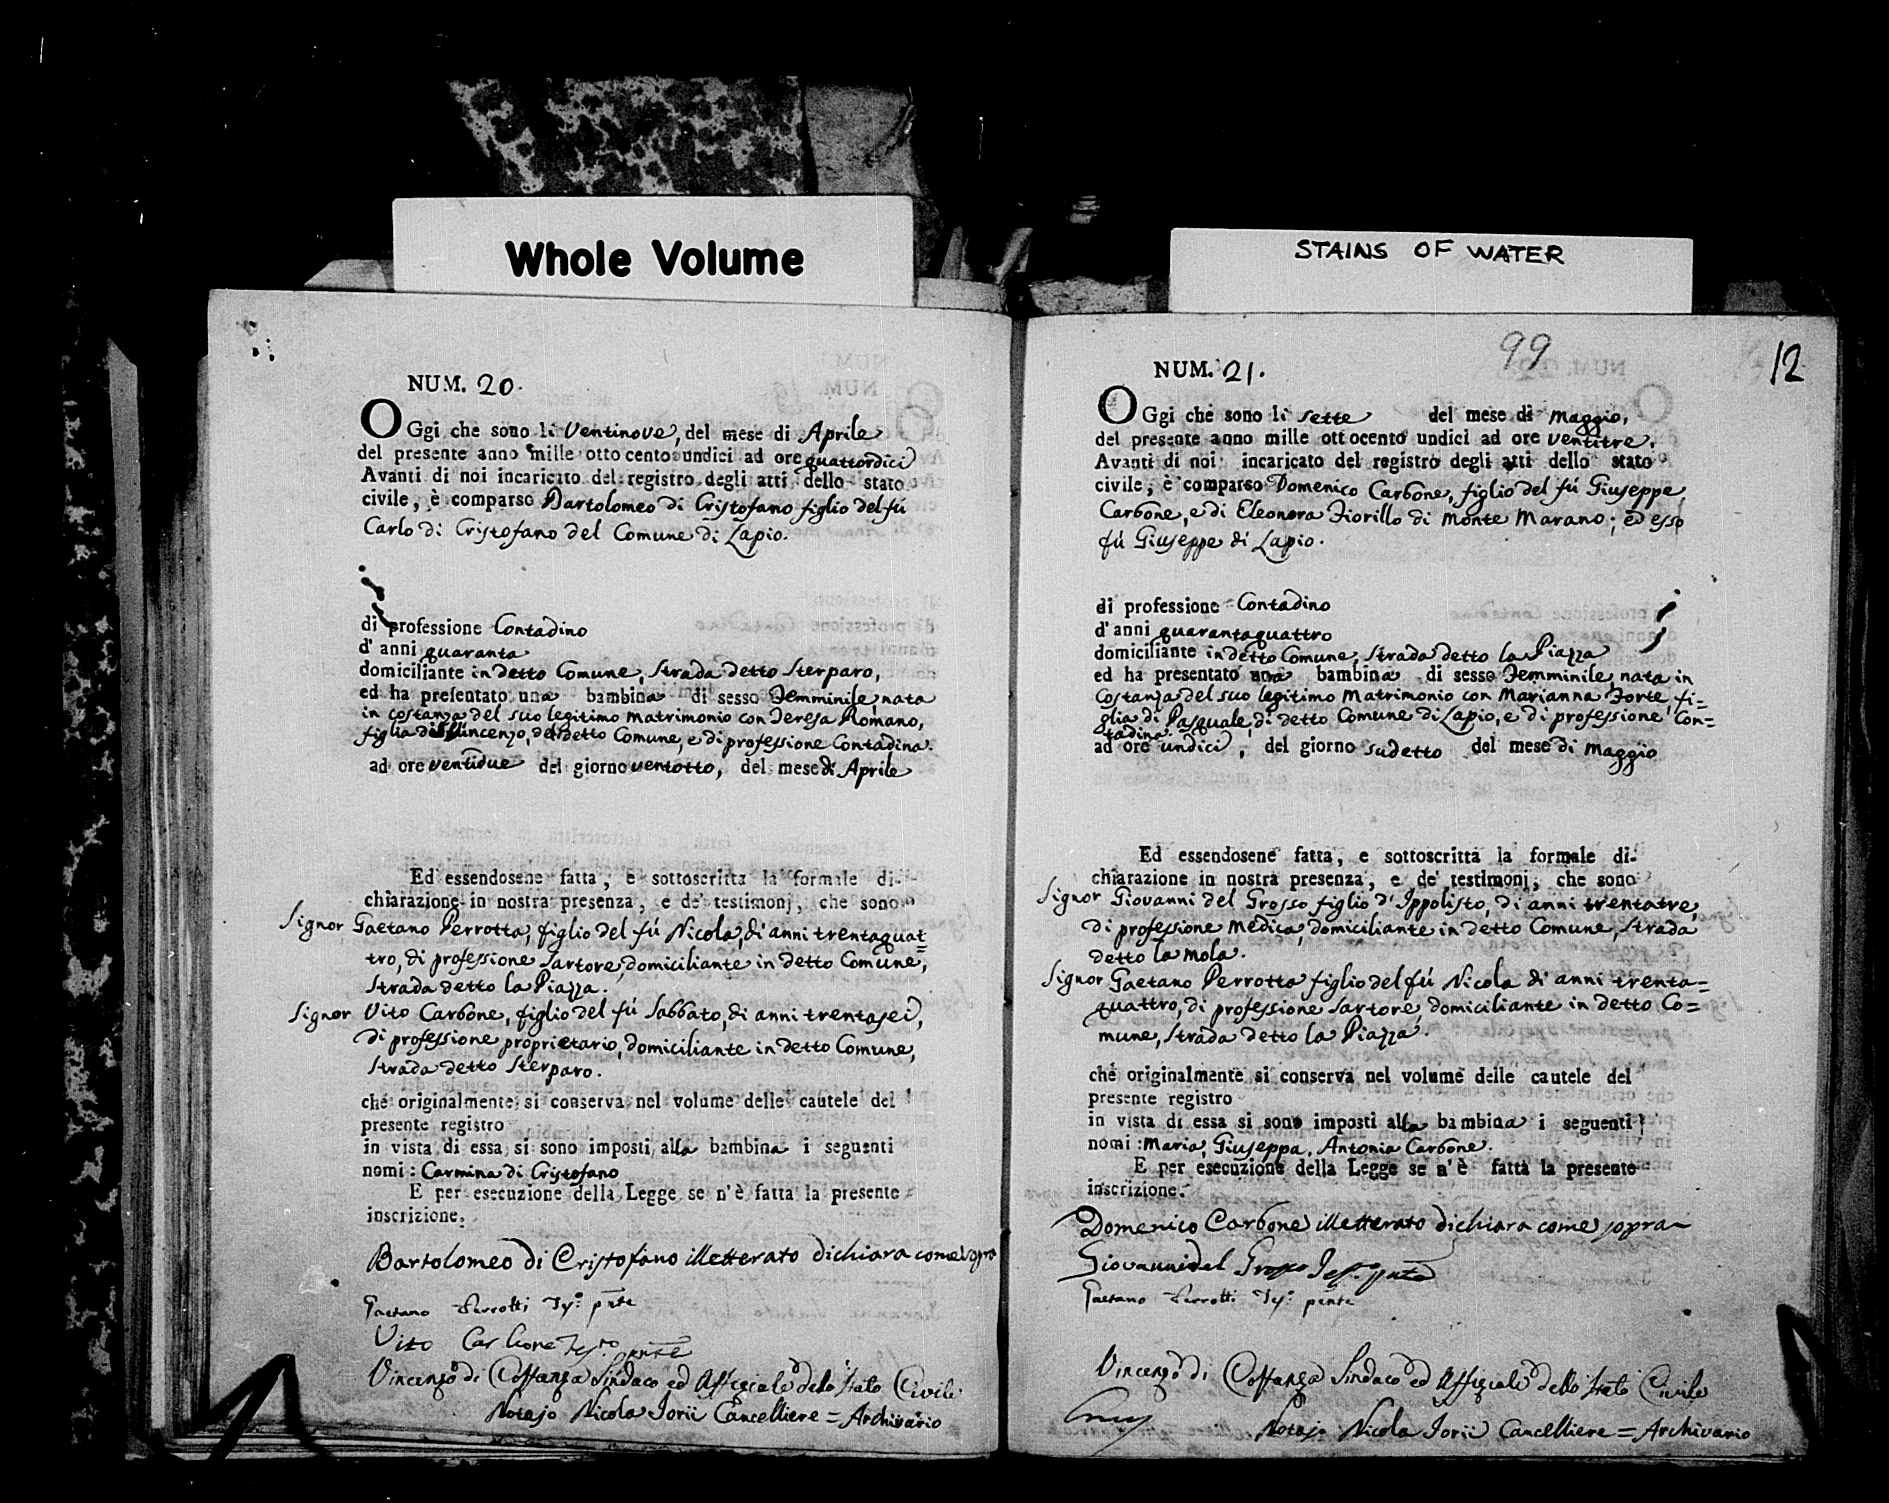 Whole Volume
STAINS OF WATER
NUM. 20.
OGgi che sono li Ventinove, del mese di Aprile
del presente anno mille ottocento undici ad ore quattordici
Avanti di noi incaricato del registro degli atti dello stato
civile, è comparso Bartolomeo di Cristofano figlio del fú
Carlo di Cristofano del Comune di Lapio.
di professione Contadino
d' anni quaranta
domiciliante in detto Comune, Strada detto Sterparo,
ed ha presentato una bambina di sesso Femminile, nata
in costanza del suo legitimo matrimonio con Teresa Romano,
figlia di Vincenzo, del detto Comune, e di professione Contadina.
ad ore ventidue del giorno ventotto, del mese di Aprile
Ed essendosene fatta, e sottoscritta la formale di-
chiarazione in nostra presenza, e de' testimonj, che sono
Signor Gaetano Perrotta, figlio del fú Nicola, di anni trentaquat=
tro, di professione Sartore, domiciliante in detto Comune,
Strada detto la Piazza.
Signor Vito Carbone, figlio del fú Sabbato, di anni trentasei,
di professione proprietario, domiciliante in detto Comune,
Strada detto Sterparo.
che originalmente si conserva nel volume delle cautele del
presente registro
in vista di essa si sono imposti alla bambina i seguenti
nomi : Carmina di Cristofano
E per esecuzione della Legge se n'è fatta la presente
inscrizione.
Bartolomeo di Cristofano illetterato dichiara come sopra
Gaetano Perrotti Tes.º pnte
Vito Carbone Tesº pnte
Vincenzo di Costanza Sindaco ed Uffiziale dello stato Civile
Notajo Nicola Iorii Cancelliere = Archivario
99
12
NUM. 21.
OGgi che sono li sette del mese di Maggio,
del presente anno mille ottocento undici ad ore ventitre.
Avanti di noi incaricato del registro degli atti dello stato
civile, è comparso Domenico Carbone, figlio del fú Giuseppe
Carbone, e di Eleonora Fiorillo di Monte Marano; ed esso
fú Giuseppe di Lapio.
di professione Contadino
d' anni quarantaquattro
domiciliante in detto Comune, Strada detto la Piazza
ed ha presentato una bambina di sesso Femminile, nata in
Costanza del suo legitimo Matrimonio con Marianna Forte, fi=
glia di Pasquale, di detto Comune di Lapio, e di professione Con=
tadina.
ad ore undici, del giorno sudetto del mese di Maggio
Ed essendosene fatta, e sottoscritta la formale di-
chiarazione in nostra presenza, e de' testimonj, che sono
Signor Giovanni del Grosso figlio d'Ippolisto, di anni trentatre,
di professione Medica, domiciliante in detto Comune, Strada
detto la mola.
Signor Gaetano Perrotta figlio del fú Nicola di anni trenta=
quattro, di professione Sartore domiciliante in detto Co=
mune, Strada detto la Piazza.
che originalmente si conserva nel volume delle cautele del
presente registro
in vista di essa si sono imposti alla bambina i seguenti
nomi : Maria, Giuseppa, Antonia Carbone.
E per esecuzione della Legge se n'è fatta la presente
inscrizione.
Domenico Carbone illetterato dichiara come sopra
Giovanni del Grosso Tes.º pnte
Gaetano Perrotti Tes.º pnte
Vincenzo di Costanza Sindaco ed Uffiziale dello stato Civile
Notajo Nicola Iorii Cancelliere = Archivario